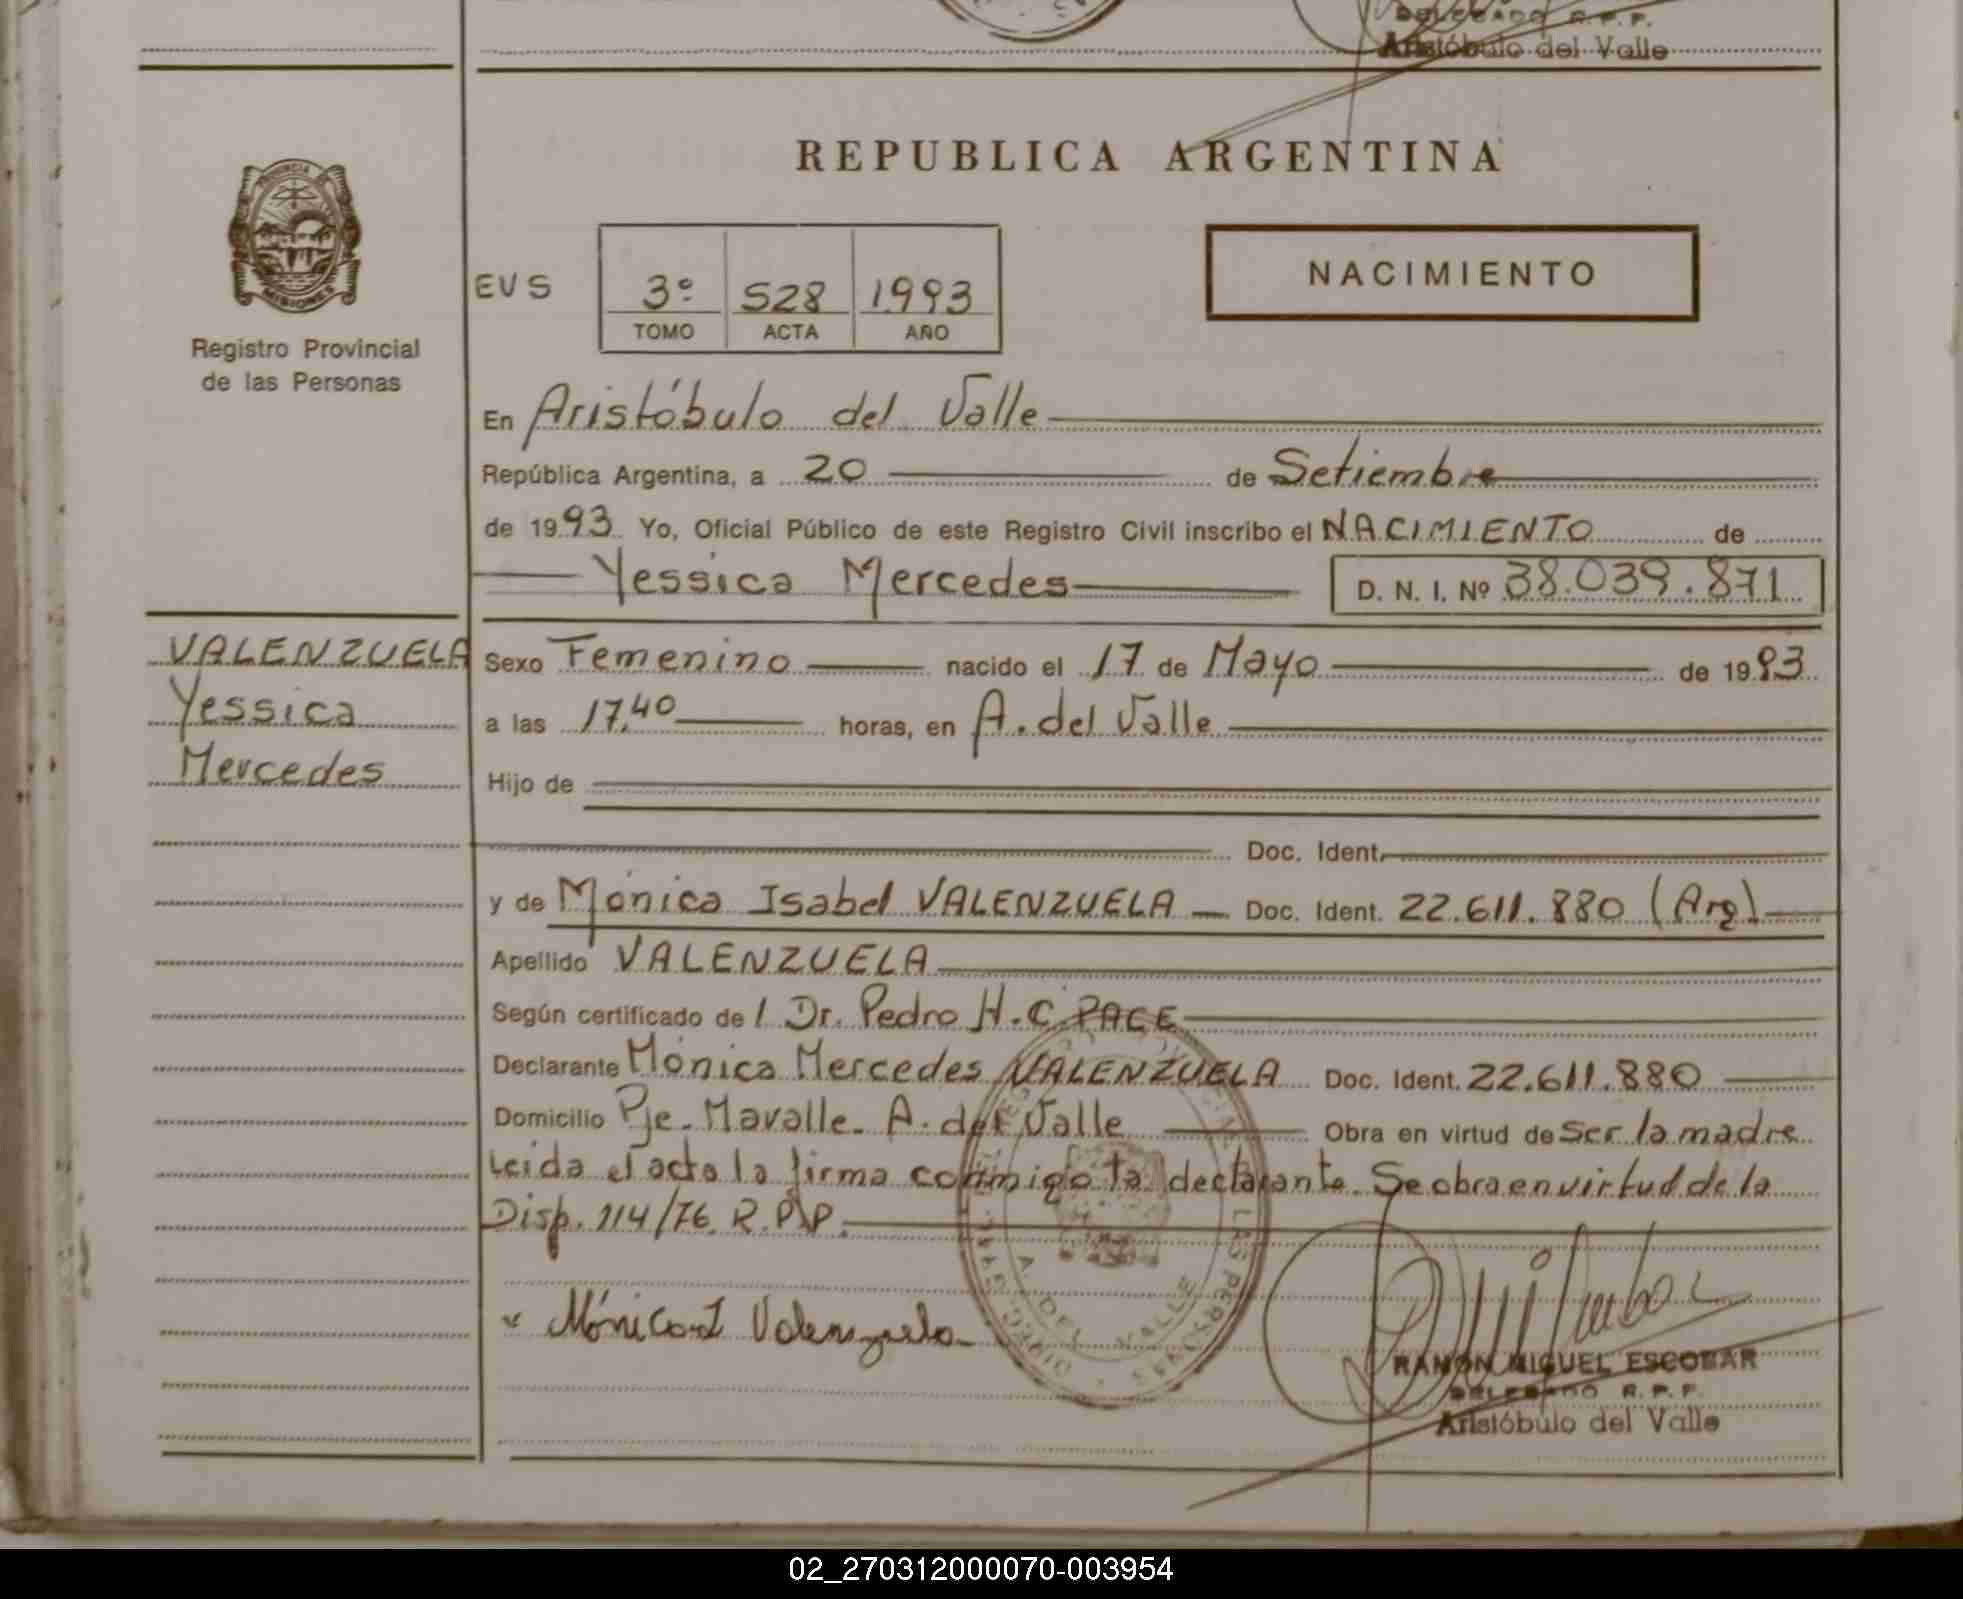 DELEGADO R.P.P.
Aristóbulo del Valle
REPUBLICA ARGENTINA
PROVINCIA DE
MISIONES
Registro Provincial
de las Personas
EVS
3º 528 1993
TOMO ACTA AÑO
NACIMIENTO
En Aristóbulo del Valle
República Argentina, a 20 de Setiembre
de 1993 Yo, Oficial Público de este Registro Civil inscribo el NACIMIENTO de
Yessica Mercedes D. N. I. Nº 38.039.871
VALENZUELA
Yessica
Mercedes
Sexo Femenino nacido el 17 de Mayo de 1993
a las 17,40 horas, en A. del Valle
Hijo de
Doc. Ident.
y de Mónica Isabel VALENZUELA Doc. Ident. 22.611.880 (Arg)
Apellido VALENZUELA
Según certificado de l Dr. Pedro H. C. PACE
Declarante Mónica Mercedes VALENZUELA Doc. Ident. 22.611.880
Domicilio Pje. Mavalle. A. del Valle Obra en virtud de Ser la madre
Leida el acta la firma conmigo la declarante. Se obra en virtud de la
Disp. 114/76 R.P.P.
A. DEL VALLE
Mónica I Valenzuela
RAMON MIGUEL ESCOBAR
DELEGADO R.P.P.
Aristóbulo del Valle
02_270312000070-003954